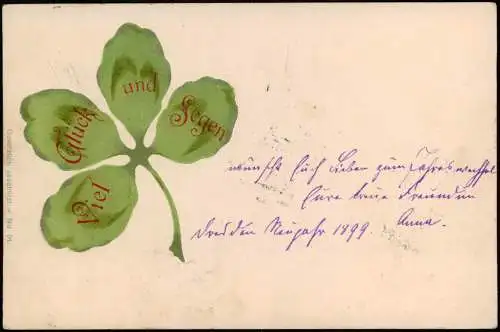 Viel
Glück
und
Segen
wünscht Euch Lieben zum Jahreswechsel
Eure treue Freundin
Anna.
Dresden Neujahr 1899.